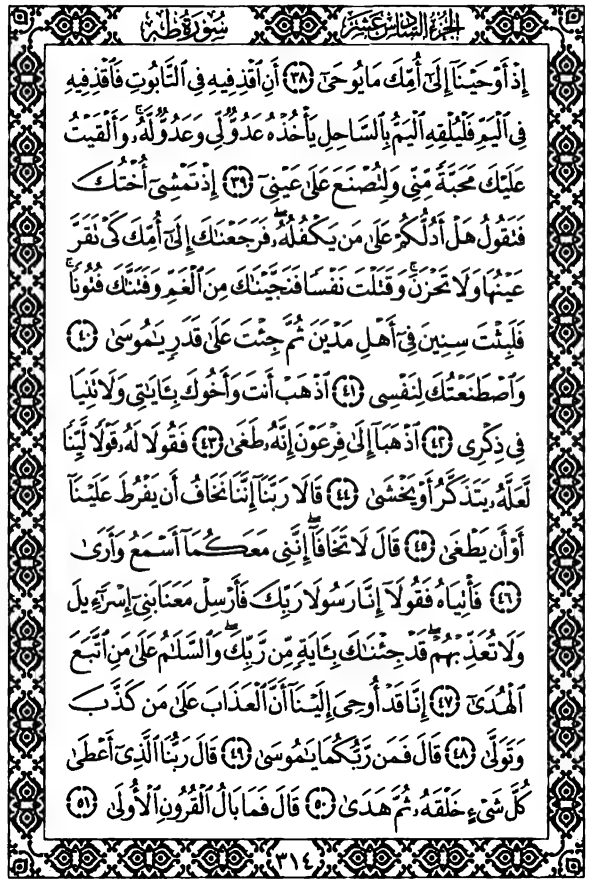 الجزء السادس عشر
سورة طه
إِذْ أَوْحَيْنَآ إِلَىٰٓ أُمِّكَ مَا يُوحَىٰٓ ﴿٣٨﴾ أَنِ ٱقْذِفِيهِ فِى ٱلتَّابُوتِ فَٱقْذِفِيهِ
فِى ٱلْيَمِّ فَلْيُلْقِهِ ٱلْيَمُّ بِٱلسَّاحِلِ يَأْخُذْهُ عَدُوٌّ لِّى وَعَدُوٌّ لَّهُۥ ۚ وَأَلْقَيْتُ
عَلَيْكَ مَحَبَّةً مِّنِّى وَلِتُصْنَعَ عَلَىٰ عَيْنِىٓ ﴿٣٩﴾ إِذْ تَمْشِىٓ أُخْتُكَ
فَتَقُولُ هَلْ أَدُلُّكُمْ عَلَىٰ مَن يَكْفُلُهُۥ ۖ فَرَجَعْنَٰكَ إِلَىٰٓ أُمِّكَ كَىْ تَقَرَّ
عَيْنُهَا وَلَا تَحْزَنَ ۚ وَقَتَلْتَ نَفْسًا فَنَجَّيْنَٰكَ مِنَ ٱلْغَمِّ وَفَتَنَّٰكَ فُتُونًا ۚ
فَلَبِثْتَ سِنِينَ فِىٓ أَهْلِ مَدْيَنَ ثُمَّ جِئْتَ عَلَىٰ قَدَرٍ يَٰمُوسَىٰ ﴿٤٠﴾
وَٱصْطَنَعْتُكَ لِنَفْسِى ﴿٤١﴾ ٱذْهَبْ أَنتَ وَأَخُوكَ بِـَٔايَٰتِى وَلَا تَنِيَا
فِى ذِكْرِى ﴿٤٢﴾ ٱذْهَبَآ إِلَىٰ فِرْعَوْنَ إِنَّهُۥ طَغَىٰ ﴿٤٣﴾ فَقُولَا لَهُۥ قَوْلًا لَّيِّنًا
لَّعَلَّهُۥ يَتَذَكَّرُ أَوْ يَخْشَىٰ ﴿٤٤﴾ قَالَا رَبَّنَآ إِنَّنَا نَخَافُ أَن يَفْرُطَ عَلَيْنَآ
أَوْ أَن يَطْغَىٰ ﴿٤٥﴾ قَالَ لَا تَخَافَآ ۖ إِنَّنِى مَعَكُمَآ أَسْمَعُ وَأَرَىٰ
﴿٤٦﴾ فَأْتِيَاهُ فَقُولَآ إِنَّا رَسُولَا رَبِّكَ فَأَرْسِلْ مَعَنَا بَنِىٓ إِسْرَٰٓءِيلَ
وَلَا تُعَذِّبْهُمْ ۖ قَدْ جِئْنَٰكَ بِـَٔايَةٍ مِّن رَّبِّكَ ۖ وَٱلسَّلَٰمُ عَلَىٰ مَنِ ٱتَّبَعَ
ٱلْهُدَىٰٓ ﴿٤٧﴾ إِنَّا قَدْ أُوحِىَ إِلَيْنَآ أَنَّ ٱلْعَذَابَ عَلَىٰ مَن كَذَّبَ
وَتَوَلَّىٰ ﴿٤٨﴾ قَالَ فَمَن رَّبُّكُمَا يَٰمُوسَىٰ ﴿٤٩﴾ قَالَ رَبُّنَا ٱلَّذِىٓ أَعْطَىٰ
كُلَّ شَىْءٍ خَلْقَهُۥ ثُمَّ هَدَىٰ ﴿٥٠﴾ قَالَ فَمَا بَالُ ٱلْقُرُونِ ٱلْأُولَىٰ ﴿٥١﴾
٣١٤